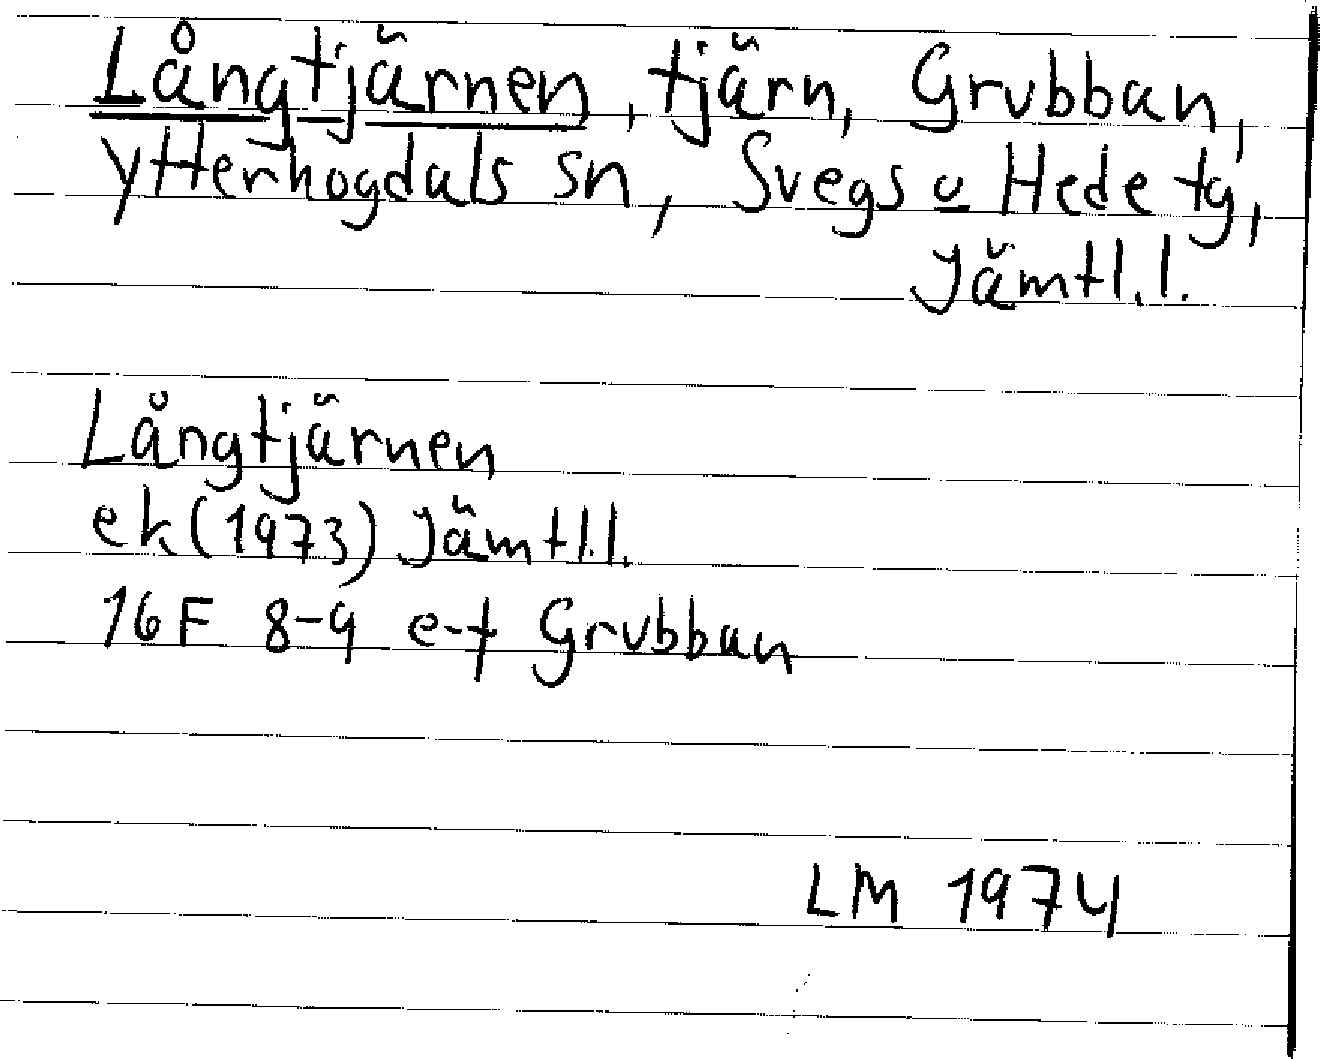 Långtjärnen, tjärn, Grubban,
Ytterhogdals sn, Svegs o Hede tg,
Jämtl.l.
Långtjärnen
ek (1973) Jämtl.l.
16F 8-9 e-f Grubban
LM 1974